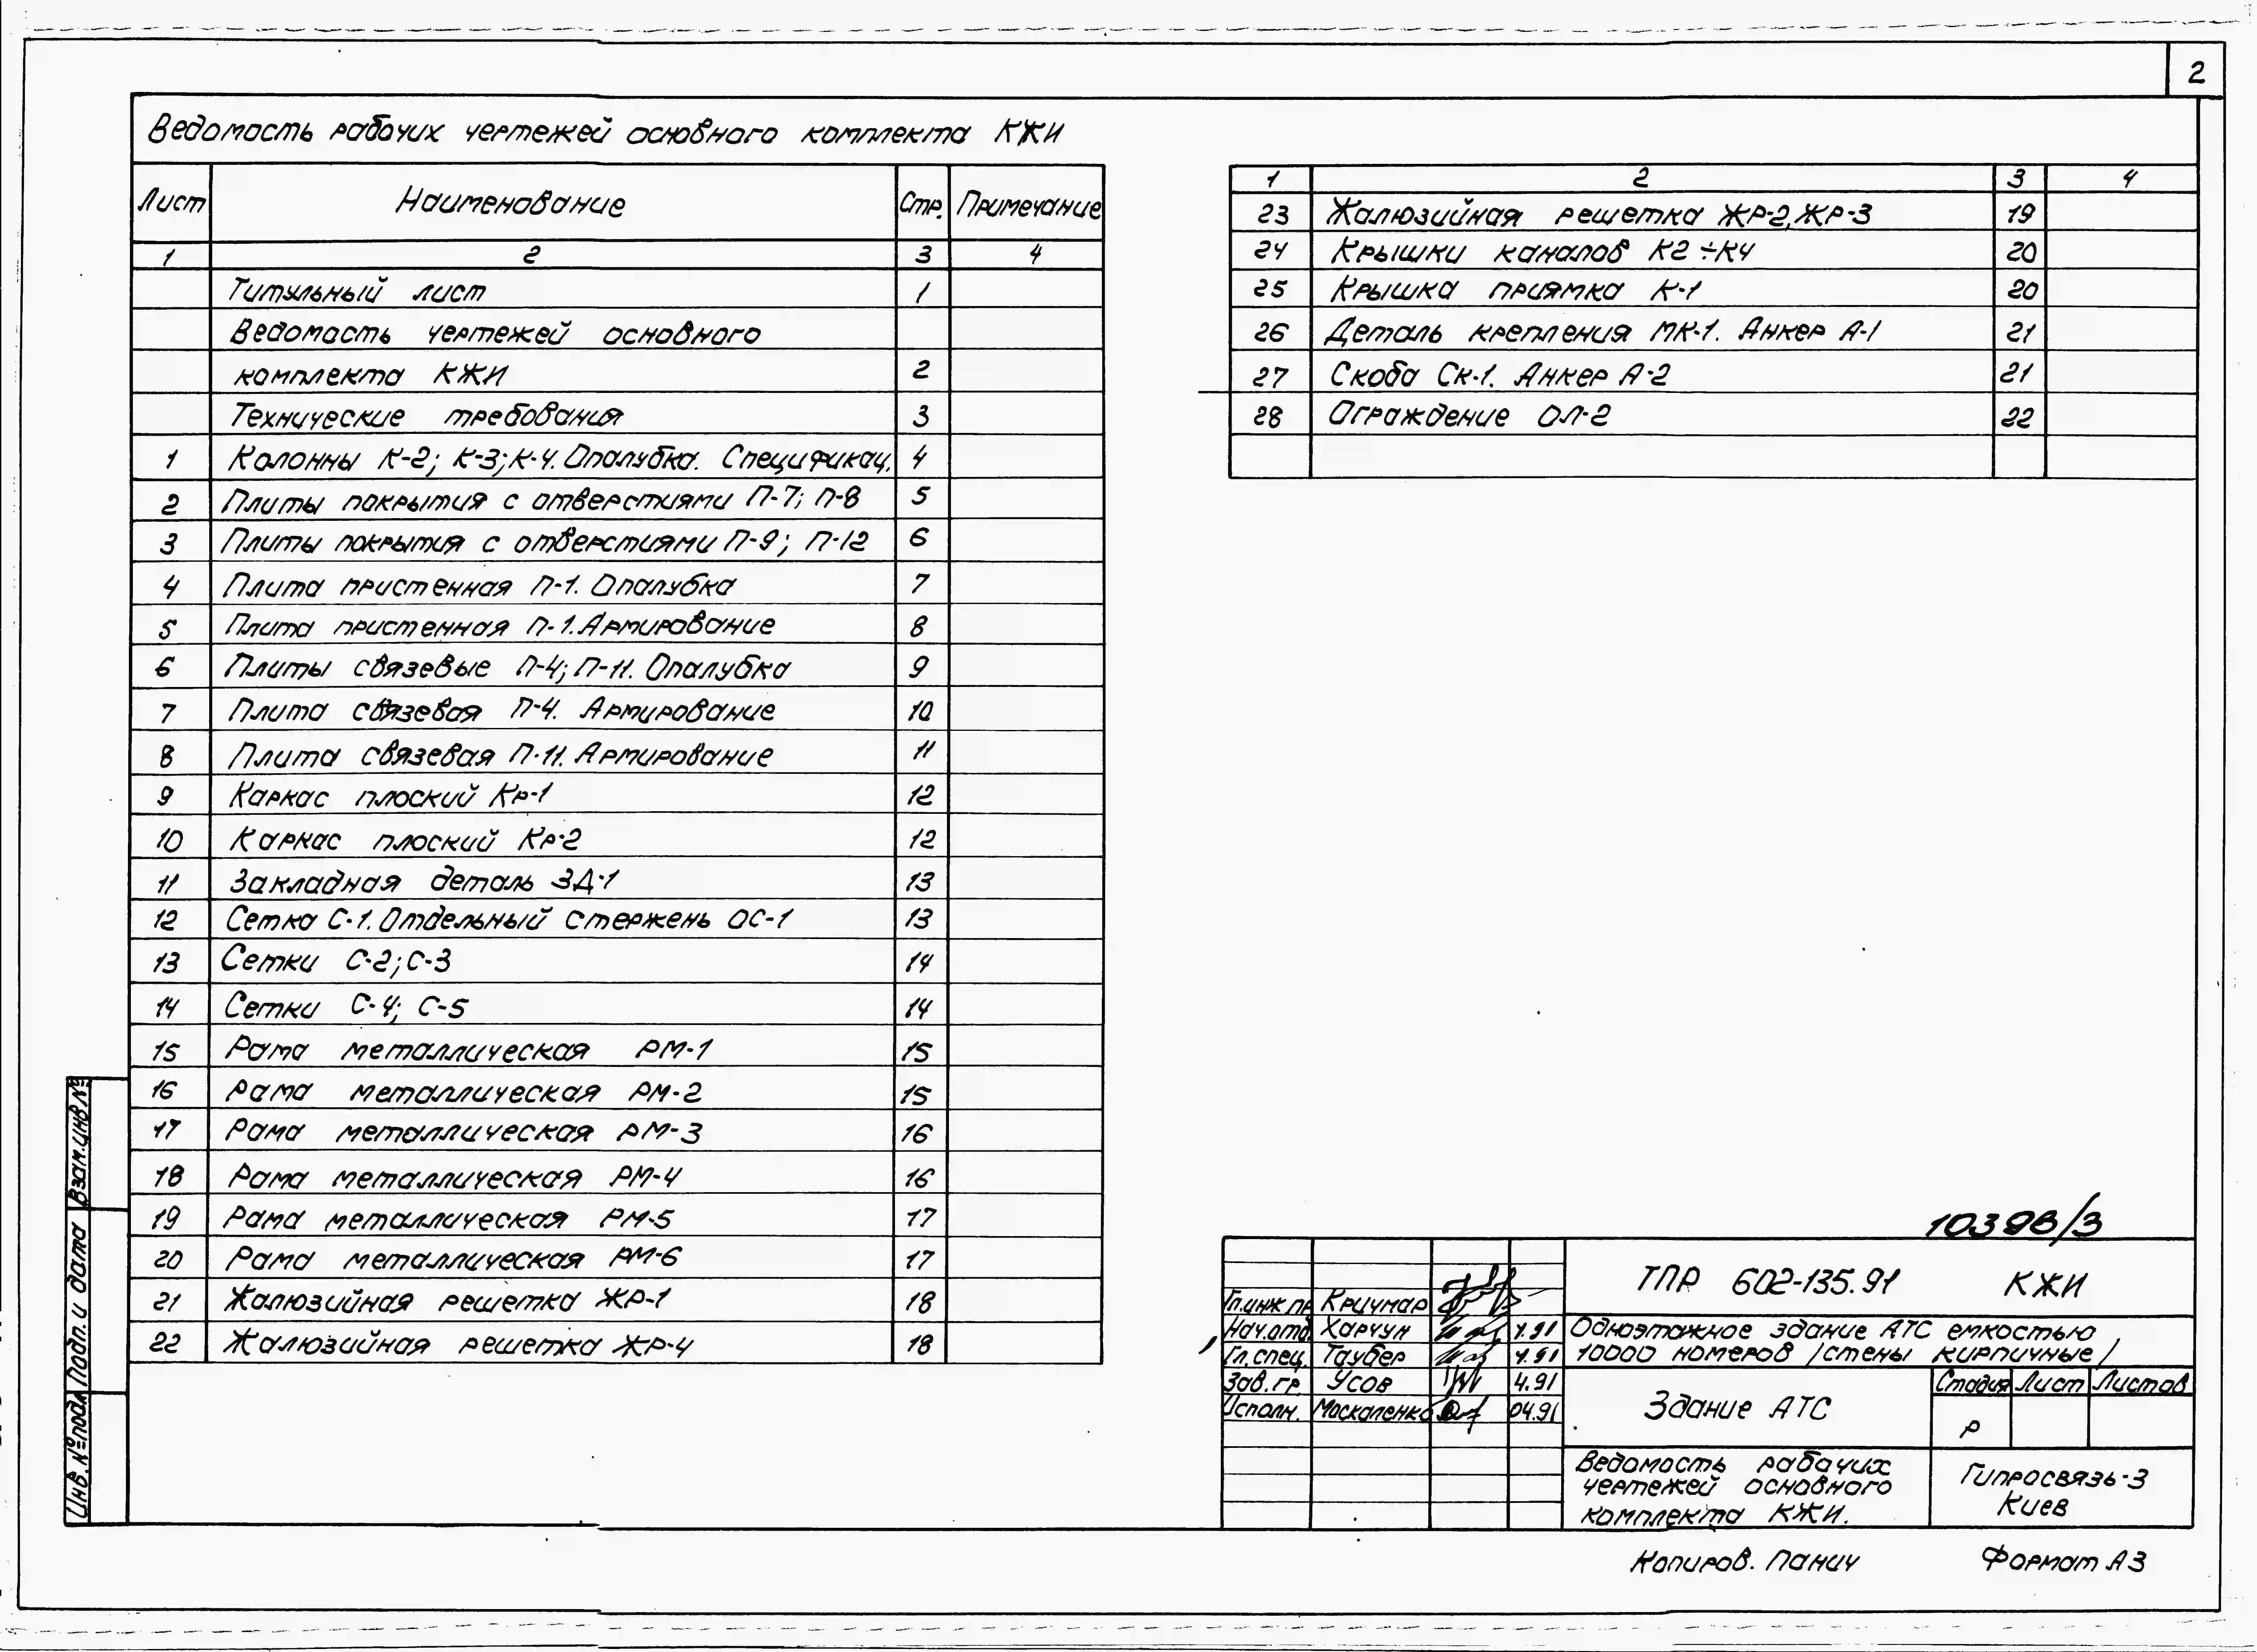 2
Ведомость рабочих чертежей основного комплекта КЖИ
Лист Наименование Стр. Примечание
1 2 3 4
Титульный лист 1
Ведомость чертежей основного
комплекта КЖИ 2
Технические требования 3
1 Колонны К-2; К-3; К-4. Опалубка. Спецификац. 4
2 Плиты покрытия с отверстиями П-7; П-8 5
3 Плиты покрытия с отверстиями П-9; П-12 6
4 Плита пристенная П-1. Опалубка 7
5 Плита пристенная П-1. Армирование 8
6 Плиты связевые П-4; П-11. Опалубка 9
7 Плита связевая П-4. Армирование 10
8 Плита связевая П-11. Армирование 11
9 Каркас плоский Кр-1 12
10 Каркас плоский Кр-2 12
11 Закладная деталь ЗД-1 13
12 Сетка С-1. Отдельный стержень ОС-1 13
13 Сетки С-2; С-3 14
14 Сетки С-4; С-5 14
15 Рама металлическая РМ-1 15
16 Рама металлическая РМ-2 15
17 Рама металлическая РМ-3 16
18 Рама металлическая РМ-4 16
19 Рама металлическая РМ-5 17
20 Рама металлическая РМ-6 17
21 Жалюзийная решетка ЖР-1 18
22 Жалюзийная решетка ЖР-4 18
1 2 3 4
23 Жалюзийная решетка ЖР-2, ЖР-3 19
24 Крышки каналов К2÷К4 20
25 Крышка приямка К-1 20
26 Деталь крепления МК-1. Анкер А-1 21
27 Скоба Ск-1. Анкер А-2 21
28 Ограждение ОЛ-2 22
Взам.инв.№
Подп. и дата
Инв.№подл
10398/3
ТПР 602-135.91 КЖИ
Гл.инж.пр Кричмар
Нач.отд. Харчун 4.91
Гл.спец. Таубер 4.91
Зав.гр. Усов 4.91
Исполн. Москаленко 04.91
Одноэтажное здание АТС емкостью
10000 номеров /стены кирпичные/
Здание АТС
Стадия Лист Листов
Р
Ведомость рабочих
чертежей основного
комплекта КЖИ.
Гипросвязь-3
Киев
Копиров. Панич Формат А3